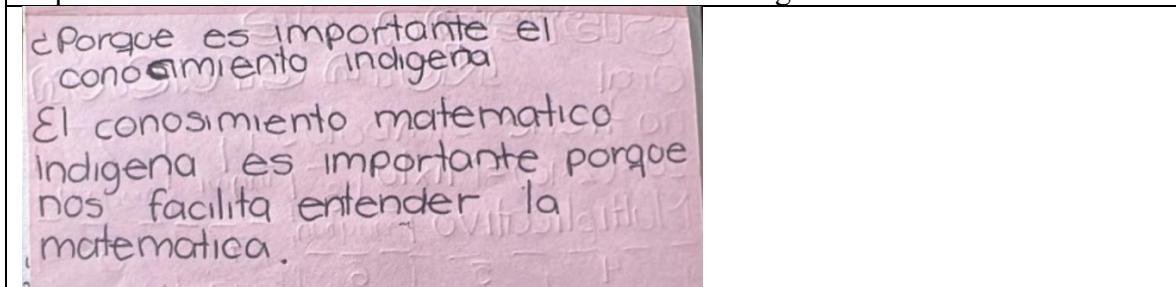 ¿Porque es importante el
conosimiento indigena
El conosimiento matematico
indigena es importante porque
nos facilita entender la
matematica.